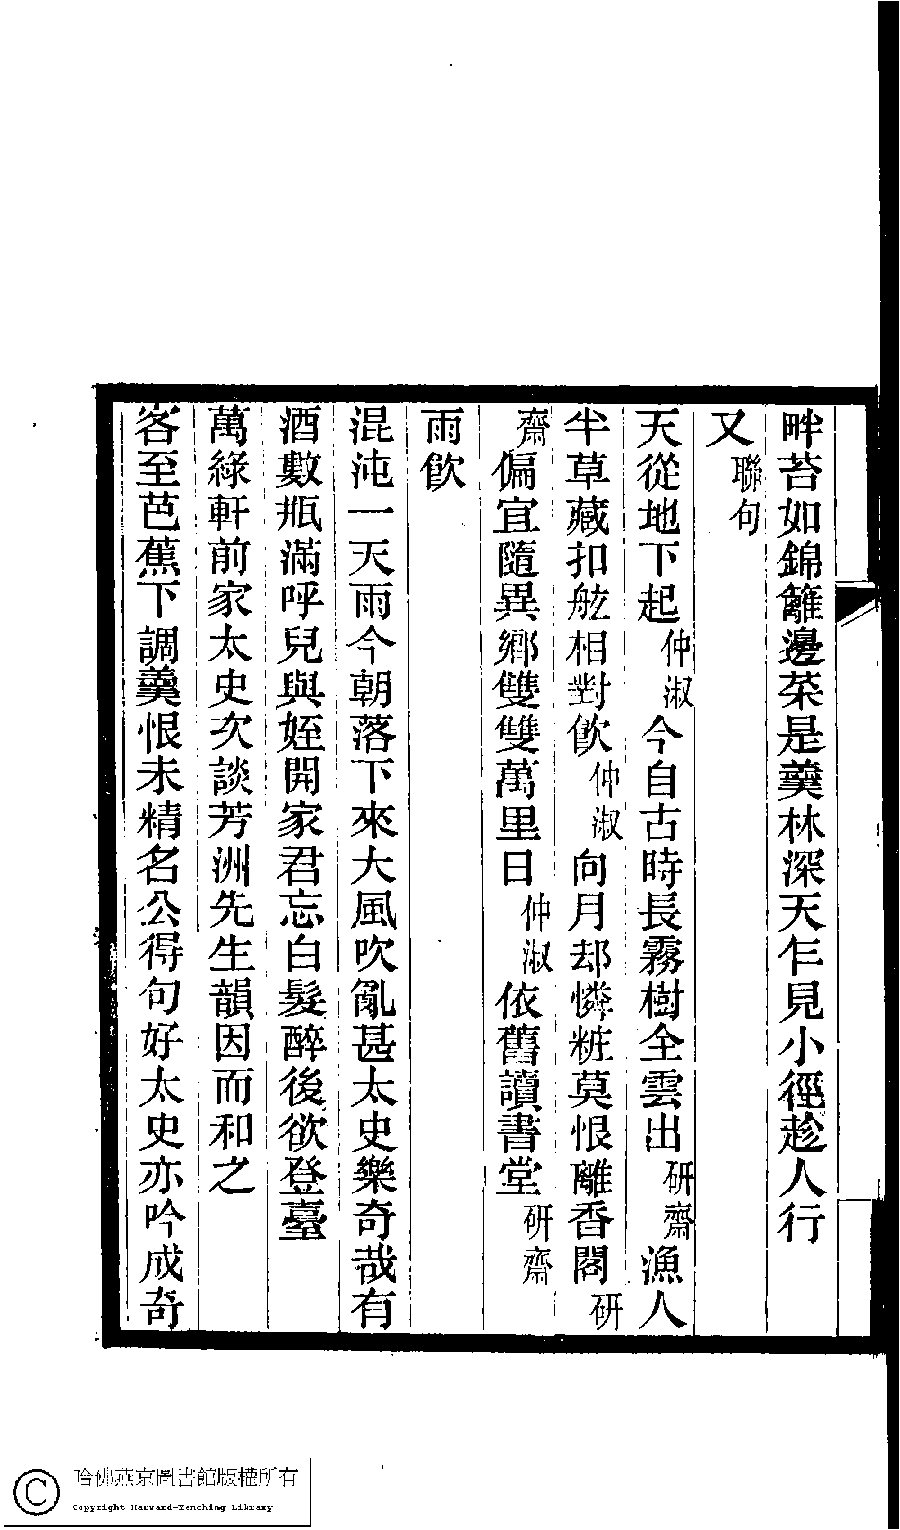 畔苔如錦籬邊菜是羹林深天乍見小徑趁人行
又聯句
天從地下起仲淑今自古時長霧樹全雲出研齋漁人
半草藏扣舷相對飲仲淑向月却憐粧莫恨離香閣研
齋偏宜隨異鄉雙雙萬里日仲淑依舊讀書堂研齋
雨飲
混沌一天雨今朝落下來大風吹亂甚太史樂奇哉有
酒數瓶滿呼兒與姪開家君忘白髮醉後欲登臺
萬綠軒前家太史次談芳洲先生韻因而和之
客至芭蕉下調羹恨未精名公得句好太史亦吟成奇
哈佛燕京圖書館版權所有
Copyright Harvard-Yenching Library